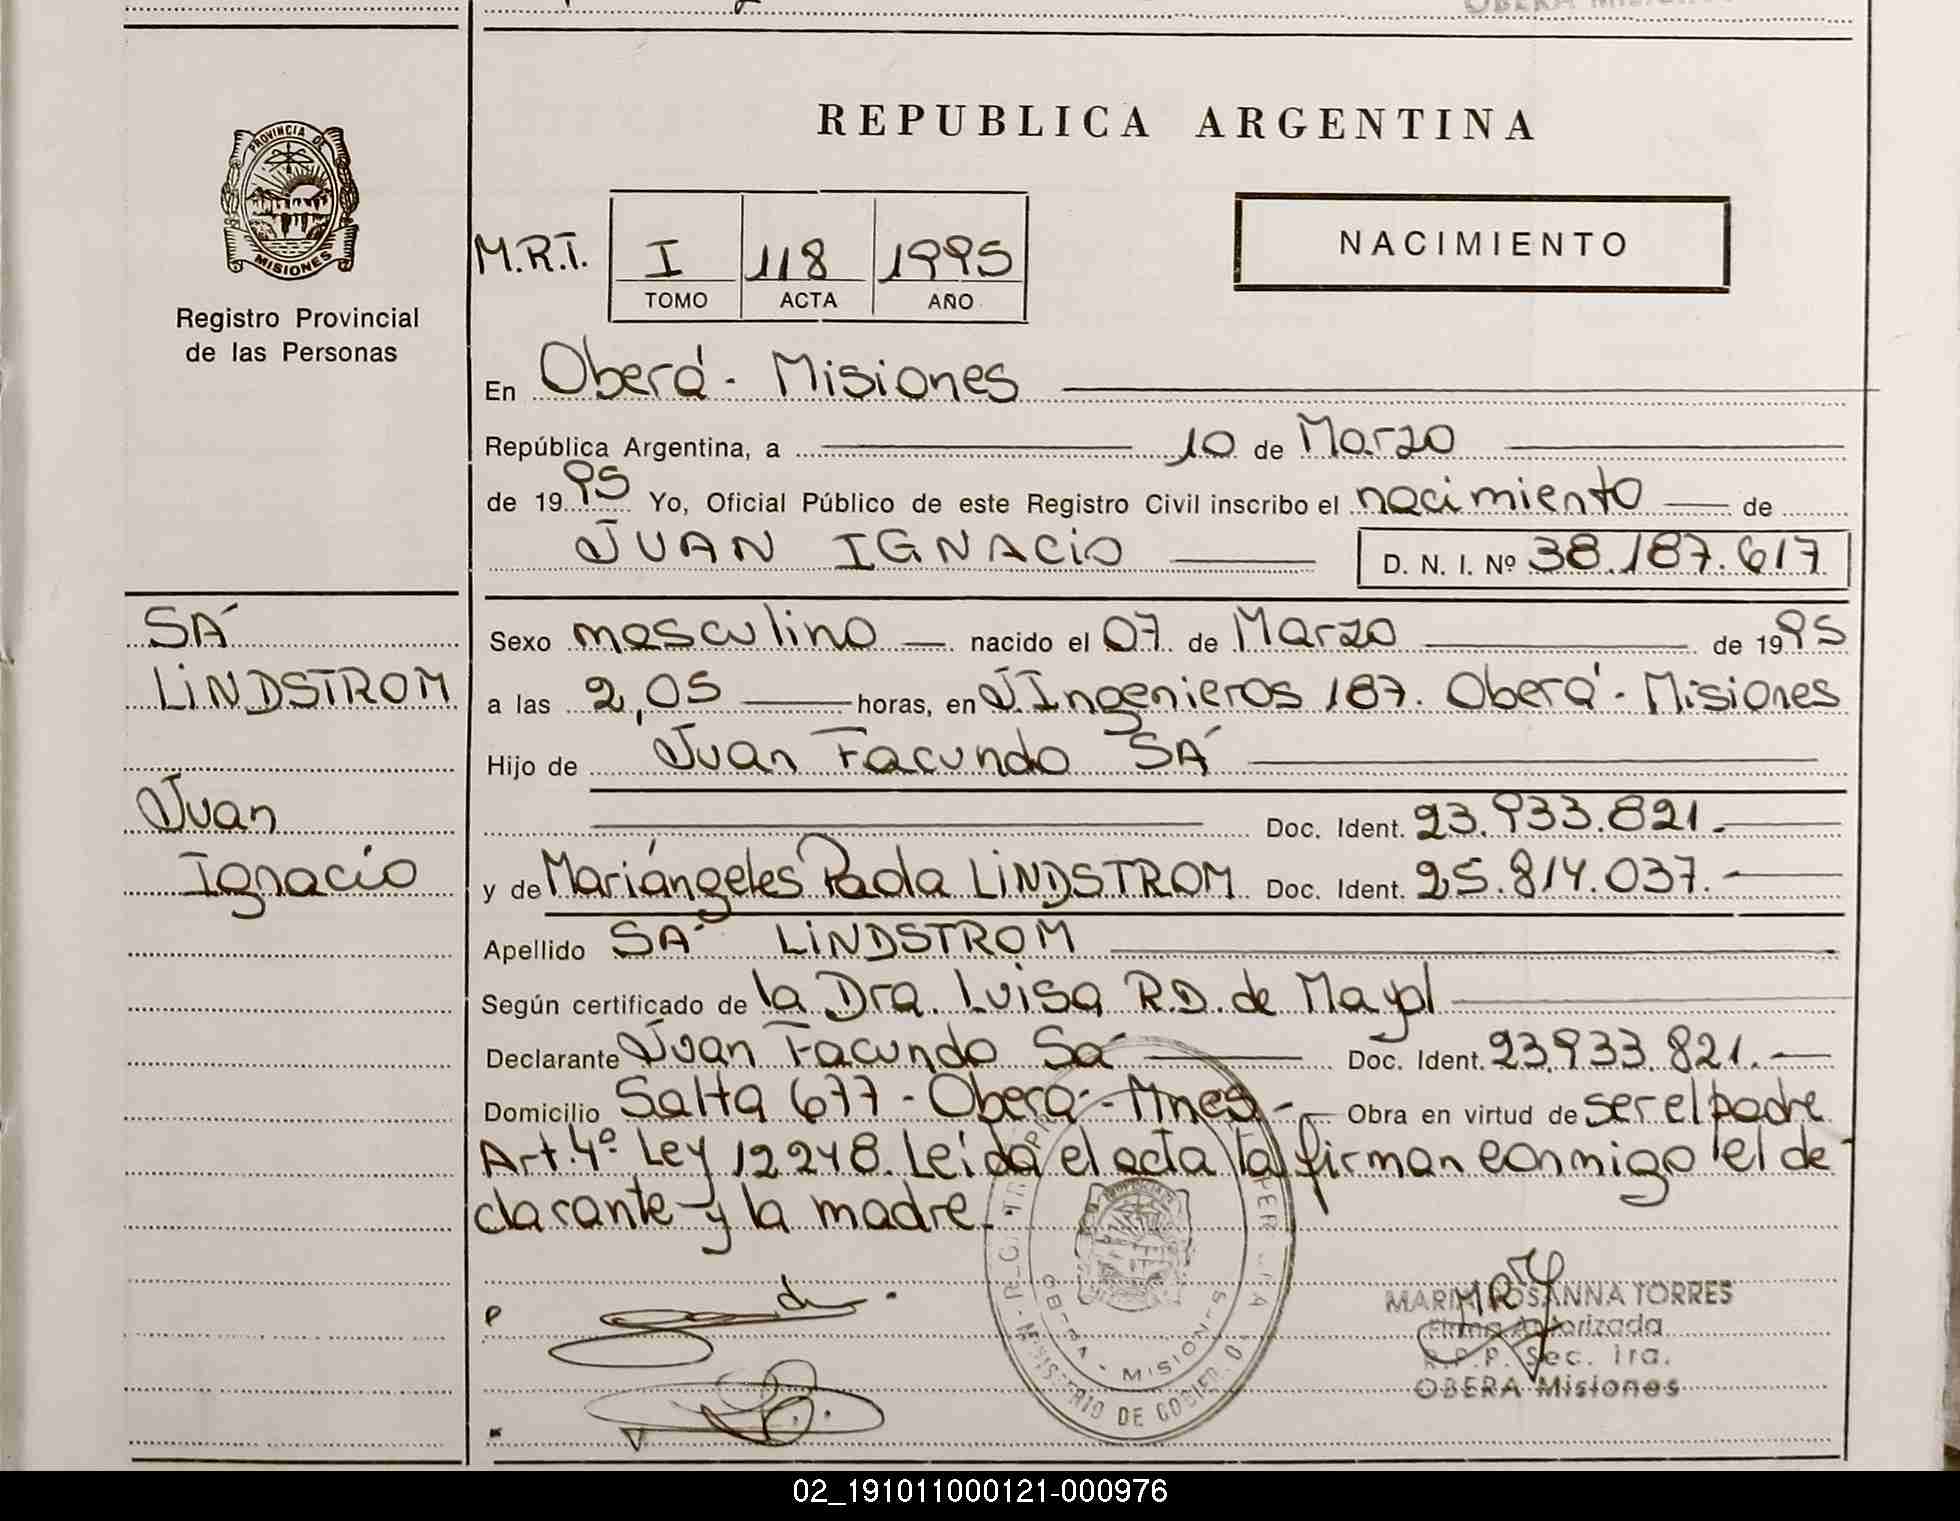 REPUBLICA ARGENTINA
PROVINCIA DE
MISIONES
Registro Provincial
de las Personas
M.R.I.
I 118 1995
TOMO ACTA AÑO
NACIMIENTO
En Oberá - Misiones
República Argentina, a 10 de Marzo
de 1995 Yo, Oficial Público de este Registro Civil inscribo el nacimiento de
JUAN IGNACIO D. N. I. Nº 38.187.617
SÁ
LINDSTROM
Juan
Ignacio
Sexo masculino nacido el 07 de Marzo de 1995
a las 2,05 horas, en J. Ingenieros 187. Oberá - Misiones
Hijo de Juan Facundo SÁ
Doc. Ident. 23.933.821.
y de Mariángeles Paola LINDSTROM Doc. Ident. 25.814.037.
Apellido SÁ LINDSTROM
Según certificado de la Dra. Luisa R.D. de Mayol
Declarante Juan Facundo Sá Doc. Ident. 23.933.821.
Domicilio Salta 677 - Oberá - Mnes - Obra en virtud de ser el padre
Art. 4º Ley 12248. Leída el acta la firman conmigo el de-
clarante y la madre.
OBERA - MISIONES
MINISTERIO DE GOBIERNO
MARIA ROSANNA TORRES
Firma Autorizada
R.P.P. Sec. 1ra.
OBERA Misiones
02_191011000121-000976